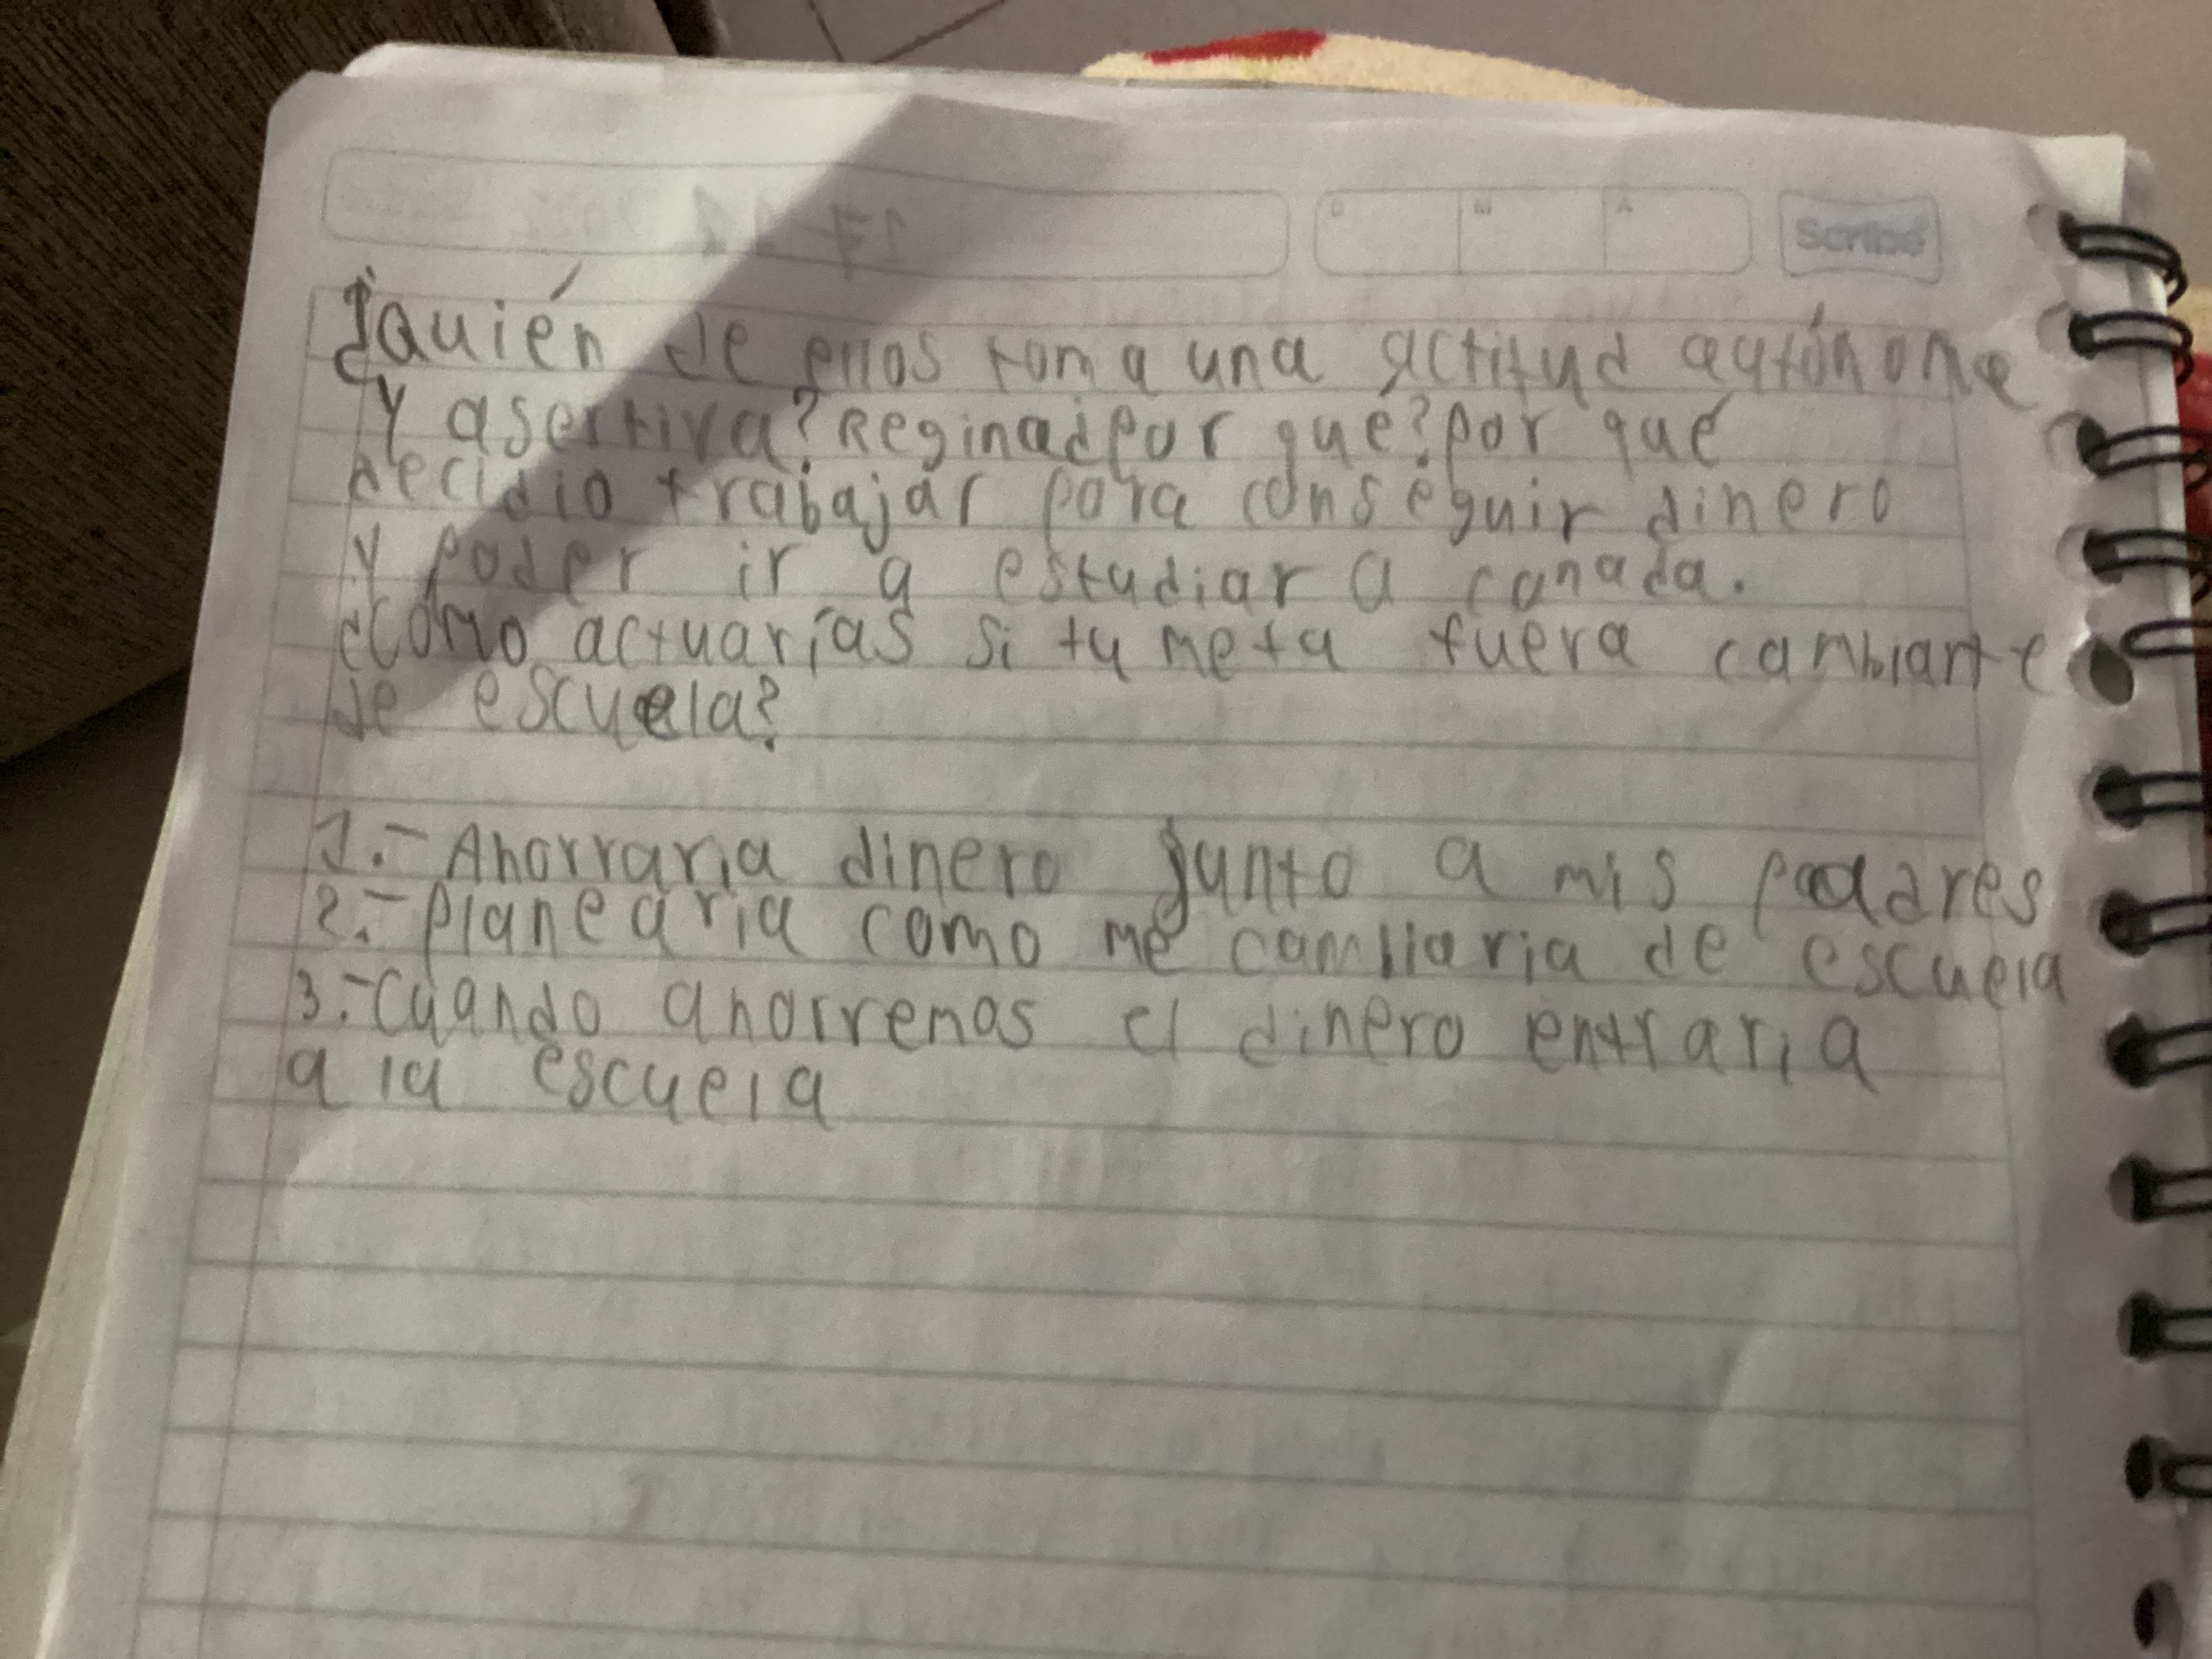 D M A Scribe
¿Quién de ellos toma una actitud autónoma
y asertiva? Regina ¿Por qué? por qué
decidio trabajar para conseguir dinero
y poder ir a estudiar a canada.
¿Cómo actuarías si tu meta fuera cambiarte
de escuela?
1.- Ahorraria dinero junto a mis padres
2.- Planearia como me cambiaria de escuela
3.- Cuando ahorremos el dinero entraria
a la escuela